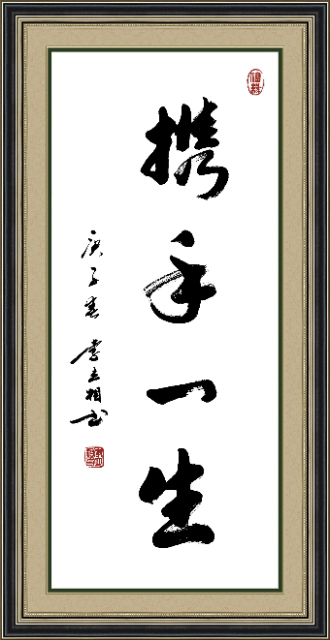 携手一生
庚子春 李立相书